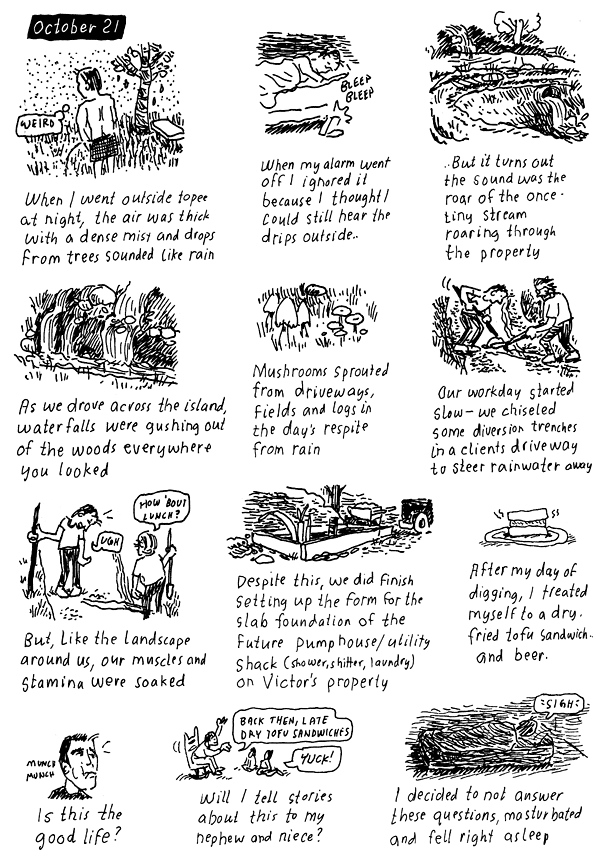 October 21
WEIRD
When I went outside to pee
at night, the air was thick
with a dense mist and drops
from trees sounded like rain
BLEEP
BLEEP
When my alarm went
off I ignored it
because I thought I
could still hear the
drips outside..
..But it turns out
the sound was the
roar of the once-
tiny stream
roaring through
the property
As we drove across the island,
waterfalls were gushing out
of the woods everywhere
you looked
Mushrooms sprouted
from driveways,
fields and logs in
the day's respite
from rain
Our workday started
slow- we chiseled
some diversion trenches
in a clients driveway
to steer rainwater away
UGH
HOW 'BOUT
LUNCH?
But, like the landscape
around us, our muscles and
stamina were soaked
Despite this, we did finish
setting up the form for the
slab foundation of the
future pumphouse/utility
shack (shower, shitter, laundry)
on Victor's property
After my day of
digging, I treated
myself to a dry.
fried tofu sandwich..
and beer.
MUNCH
MUNCH
Is this the
good life?
BACK THEN, LATE
DAY TOFU SANDWICHES
YUCK!
Will I tell stories
about this to my
nephew and niece?
SIGH
I decided to not answer
these questions, masturbated
and fell right asleep